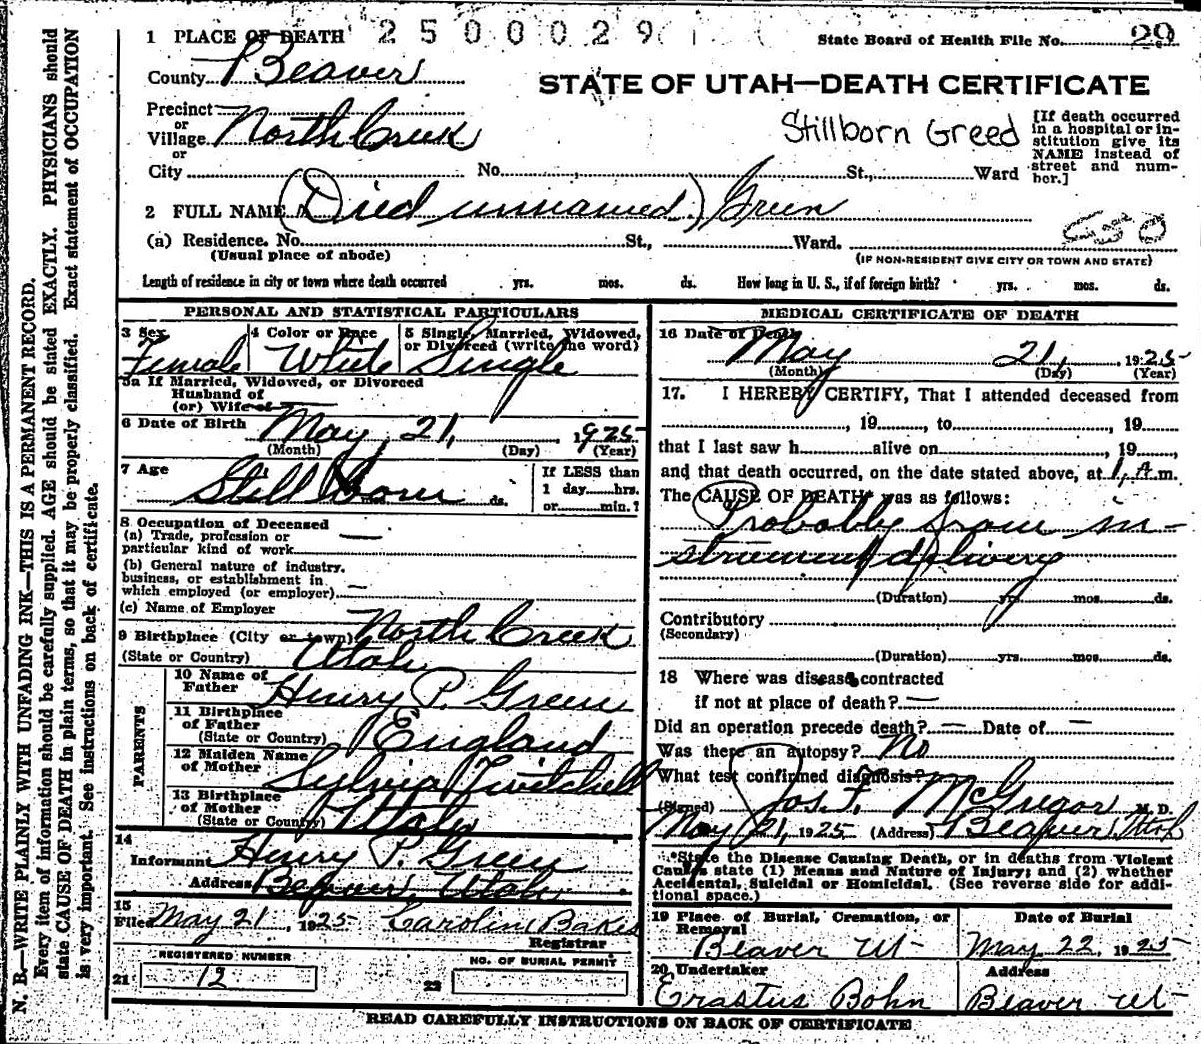 2500029
State Board of Health File No. 29
1 PLACE OF DEATH
County Beaver
STATE OF UTAH—DEATH CERTIFICATE
Precinct
or
Village North Creek
or
City No. St., Ward
Stillborn Greed
[If death occurred
in a hospital or in-
stitution give its
NAME instead of
street and num-
ber.]
2 FULL NAME (Died unnamed) Green
(a) Residence. No. St., Ward.
(Usual place of abode)
(IF NON-RESIDENT GIVE CITY OR TOWN AND STATE)
Length of residence in city or town where death occurred yrs. mos. ds. How long in U. S., if of foreign birth? yrs. mos. ds.
PERSONAL AND STATISTICAL PARTICULARS
3 Sex 4 Color or Race 5 Single, Married, Widowed,
or Divorced (write the word)
Female White Single
5a If Married, Widowed, or Divorced
Husband of
(or) Wife of
6 Date of Birth May 21, 1925
(Month) (Day) (Year)
7 Age Still Born ds.
If LESS than
1 day hrs.
or min.?
8 Occupation of Deceased
(a) Trade, profession or
particular kind of work
(b) General nature of industry,
business, or establishment in
which employed (or employer)
(c) Name of Employer
9 Birthplace (City or town) North Creek
(State or Country) Utah
PARENTS
10 Name of
Father Henry P. Green
11 Birthplace
of Father
(State or Country) England
12 Maiden Name
of Mother Sylvia Twitchell
13 Birthplace
of Mother
(State or Country) Utah
14
Informant Henry P. Green
Address Beaver, Utah
15
Filed May 21, 1925 Caroline Bakes
Registrar
REGISTERED NUMBER
21 12
NO. OF BURIAL PERMIT
22
MEDICAL CERTIFICATE OF DEATH
16 Date of Death
May 21, 1925
(Month) (Day) (Year)
17. I HEREBY CERTIFY, That I attended deceased from
, 19 , to , 19
that I last saw h alive on , 19
and that death occurred, on the date stated above, at 1, A.m.
The CAUSE OF DEATH was as follows:
Probably from in-
strument delivery
(Duration) yrs. mos. ds.
Contributory
(Secondary)
(Duration) yrs. mos. ds.
18 Where was disease contracted
if not at place of death? —
Did an operation precede death? — Date of —
Was there an autopsy? No
What test confirmed diagnosis?
(Signed) Jos. F. McGregor M. D.
May 21, 1925 (Address) Beaver Utah
*State the Disease Causing Death, or in deaths from Violent
Causes state (1) Means and Nature of Injury; and (2) whether
Accidental, Suicidal or Homicidal. (See reverse side for addi-
tional space.)
19 Place of Burial, Cremation, or
Removal
Beaver Ut
Date of Burial
May 22, 1925
20 Undertaker
Erastus Bohn
Address
Beaver Ut
READ CAREFULLY INSTRUCTIONS ON BACK OF CERTIFICATE
N. B.—WRITE PLAINLY WITH UNFADING INK—THIS IS A PERMANENT RECORD.
Every item of information should be carefully supplied. AGE should be stated EXACTLY. PHYSICIANS should
state CAUSE OF DEATH in plain terms, so that it may be properly classified. Exact statement of OCCUPATION
is very important. See instructions on back of certificate.